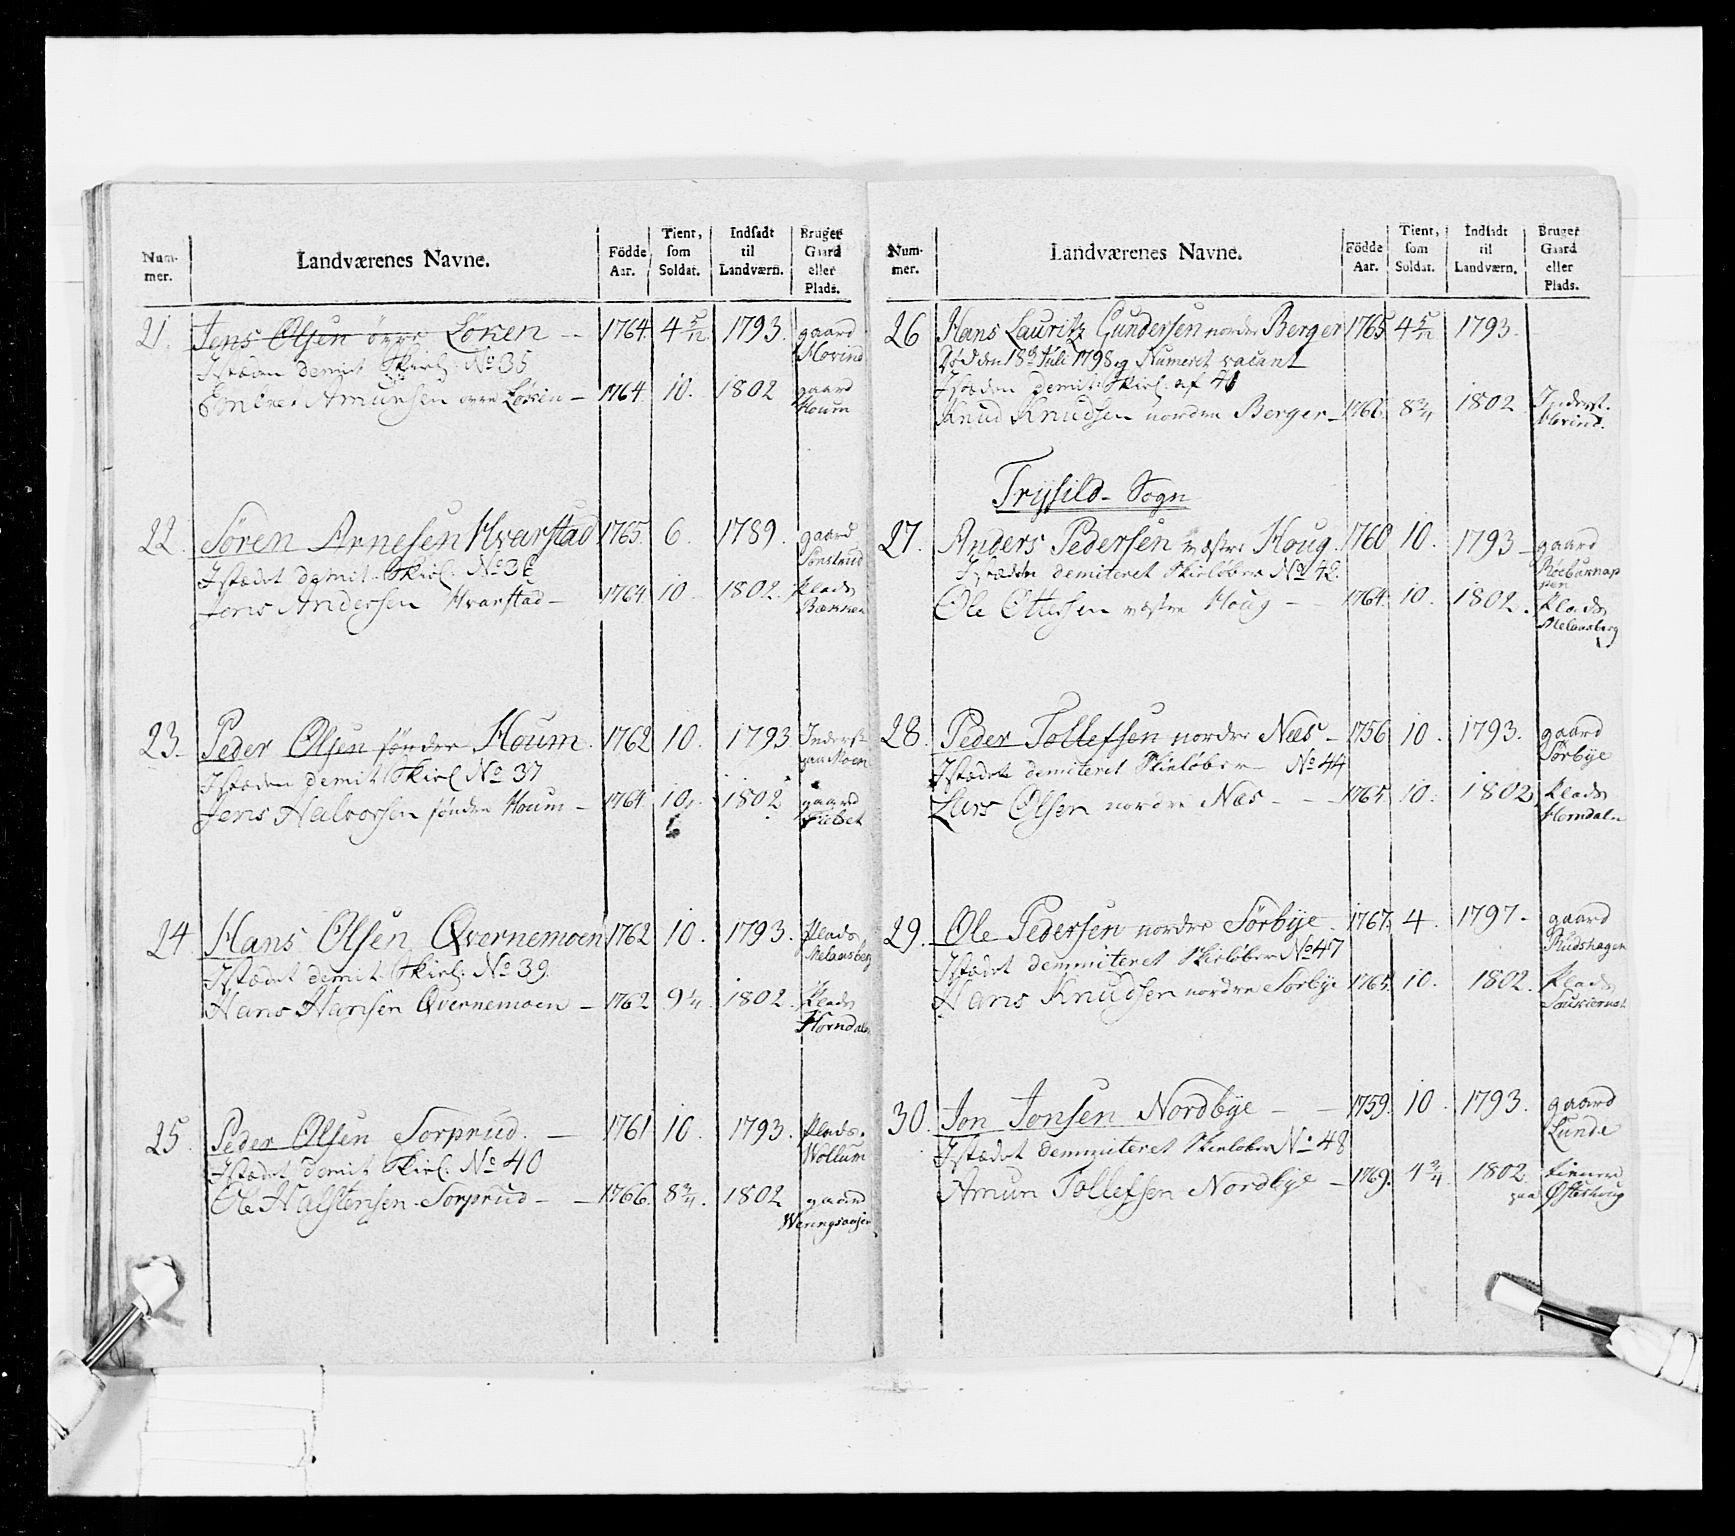 Num-
mer.
Landværenes Navne.
Födde
Aar.
Tient,
som
Soldat.
Indsadt
til
Landværn.
Bruger
Gaard
eller
Plads.
21. Jens Olsen övre Löken -- 1764. 4 5/12 1793. gaard
Istæden demit Skiel. No 35 Hovind
Embret Amunsen övre Löken - 1764. 10. 1802 gaard
Houm
22. Sören Arnesen Hvarstad 1765. 6. 1789. gaard
Istædet demit. Skiel. No 36 Sonstrud
Jens Andersen Hvarstad - 1764. 10. 1802. Plads
23. Peder Olsen söndre Houm. 1762 10. 1793 Inderst
Istæden demit Skiel No 37 paa Moen
Jens Halvorsen söndre Houm - 1764. 10. 1802 gaard
6
24 Hans Olsen Qvernemoen 1762 10. 1793. Plads
Istædet demit. Skiel. No 39. Melaasberg
Hans Hansen Qvernemoen - 1762 9 1/4. 1802. Plads
Horndalen
25. Peder Olsen Sorprud. - 1761 10. 1793. Plads.
Istædet demit Skiel. No 40 Wollum
Ole Halstensen Sorprud - - 1766. 8 3/4. 1802 gaard
Num-
mer.
Landværenes Navne.
Födde
Aar.
Tient,
som
Soldat.
Indsadt
til
Landværn.
Bruger
Gaard
eller
Plads.
26 Hans Lauritz Gundersen nordre Berger 1765 4 5/12 1793.
Död den 18de Juli 1798 og Numeret vacant
Istæden demit Skiel. af 41
Knud Knudsen nordre Berger - 1766. 8 3/4 1802 Inderst.
Hovind.
Trysild - Sogn
27. Anders Pedersen væstre Houg. 1760 10. 1793 - gaard
Istæden demiteret Skielöber No 42.
Ole Ottersen væstre Houg - - 1764. 10. 1802. Plads
Melaasberg
28. Peder Tollefsen nordre Næs - 1756 10. 1793. gaard
Istædet demiteret Skielöber - No 44 Sörbye
Lars Olsen nordre Næs - - - 1765. 10. 1802 Plads
Horndalen
29. Ole Pedersen nordre Sörbye. 1767. 4. 1797. gaard
Istædet demmiteret Skielöber No 47 Rudshagen
Hans Knudsen nordre Sörbye 1765. 10. 1802. Plads
30. Jon Jonsen Nordbye - - 1759. 10. 1793. gaard
Istædet demmiteret Skielöber No 48 Lunde
Amun Tollefsen Nordbye - 1769. 4 3/4 1802. tienere
paa Österhoug